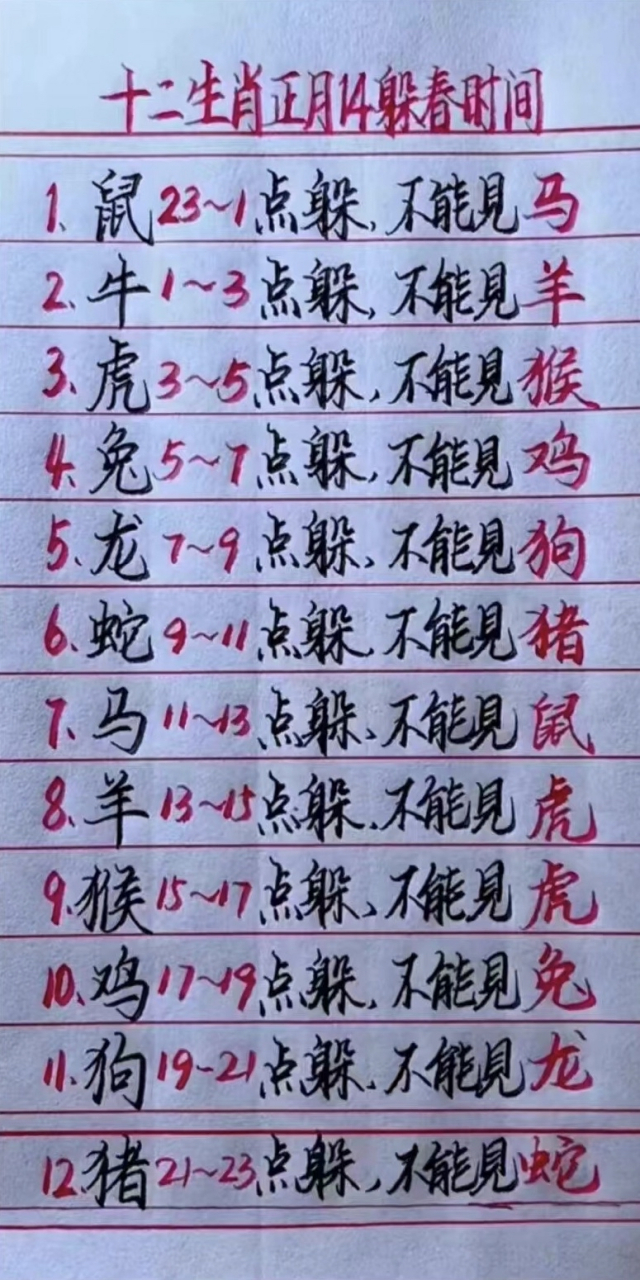 十二生肖正月14躲春时间
1、鼠23~1点躲,不能見马
2、牛1~3点躲,不能見羊
3、虎3~5点躲,不能見猴
4、兔5~7点躲,不能見鸡
5、龙7~9点躲、不能見狗
6、蛇9~11点躲、不能見猪
7、马11~13点躲、不能見鼠
8、羊13~15点躲、不能見虎
9、猴15~17点躲、不能見虎
10、鸡17~19点躲、不能見兔
11、狗19-21点躲、不能見龙
12、猪21~23点躲,不能見蛇